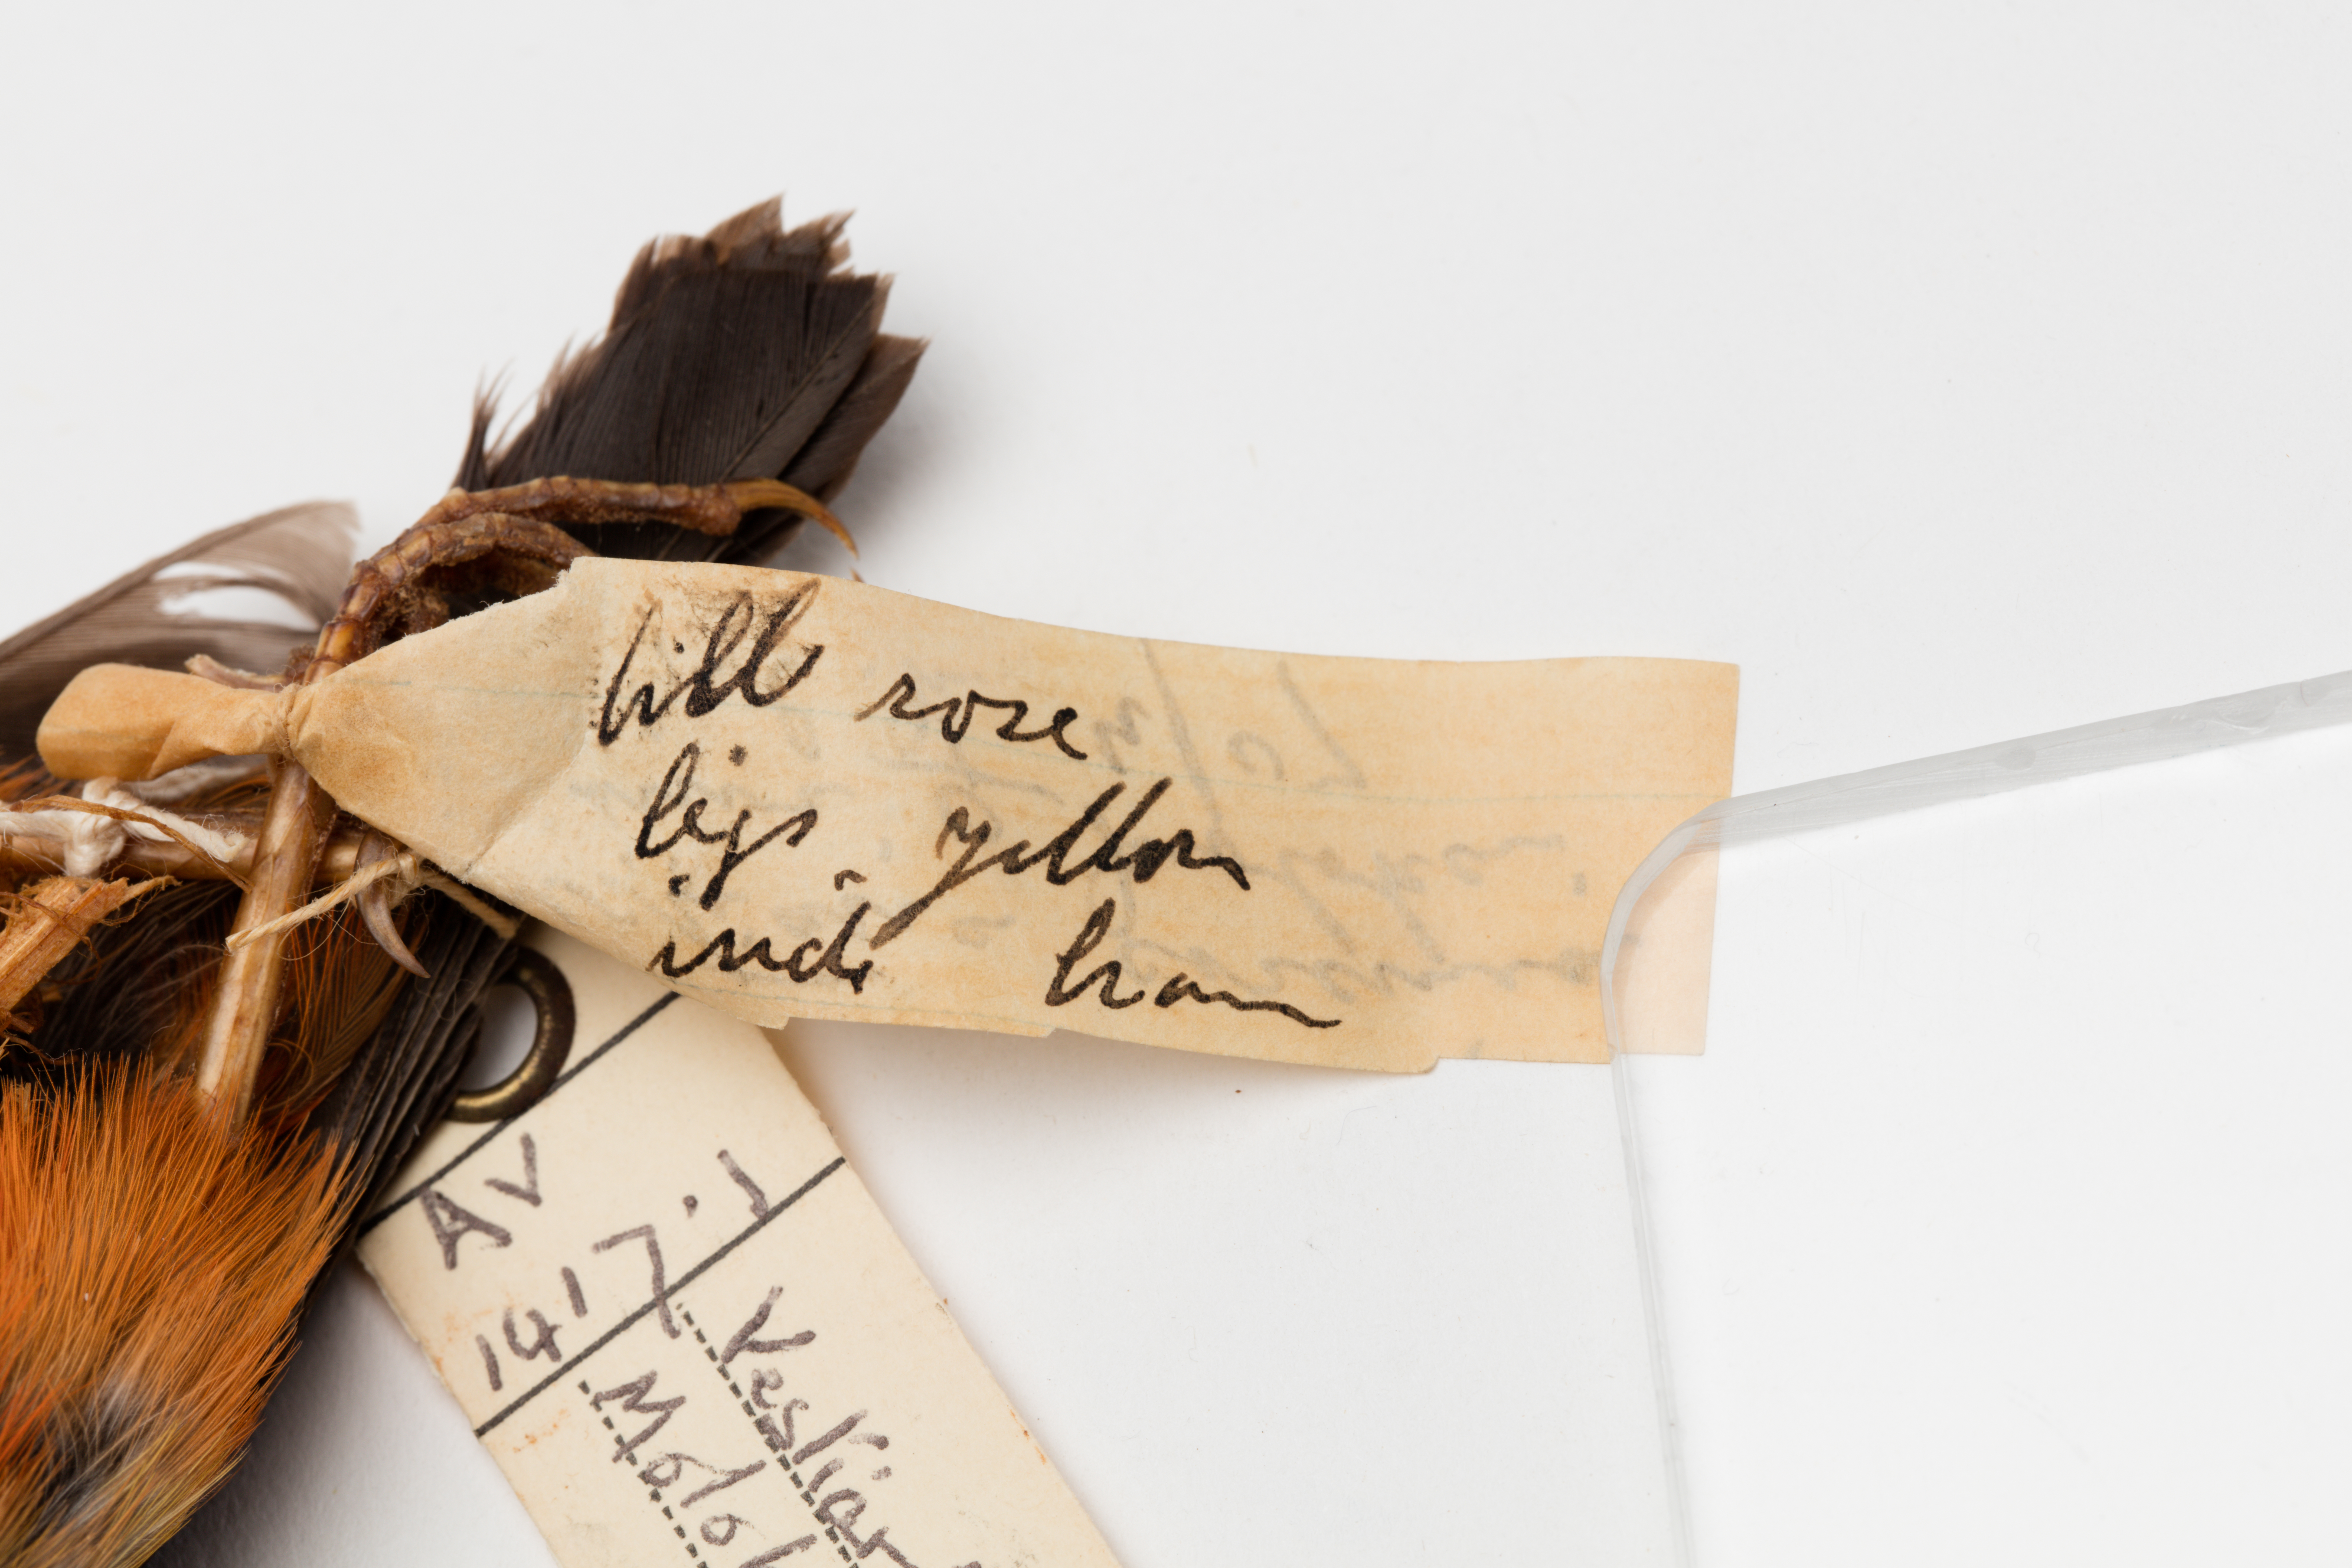 bill rose
legs yellow
iride brown
AV
1417.1
Vestiar
Molo